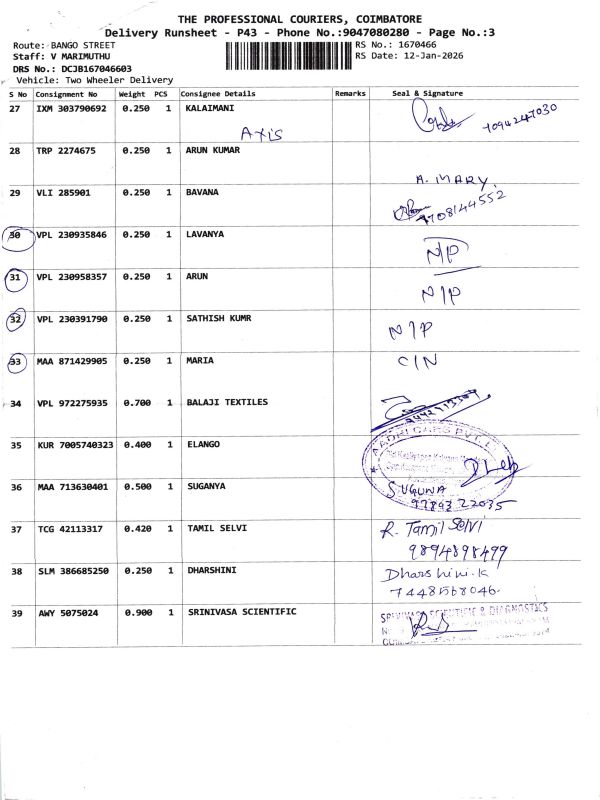 THE PROFESSIONAL COURIERS, COIMBATORE
Delivery Runsheet - P43 - Phone No.:9047080280 - Page No.:3
Route: BANGO STREET RS No.: 1670466
Staff: V MARIMUTHU RS Date: 12-Jan-2026
DRS No.: DCJB167046603
Vehicle: Two Wheeler Delivery
S No Consignment No Weight PCS Consignee Details Remarks Seal & Signature
27 IXM 303790692 0.250 1 KALAIMANI
AXIS
28 TRP 2274675 0.250 1 ARUN KUMAR
A. MARY.
29 VLI 285901 0.250 1 BAVANA 9708144552
30 VPL 230935846 0.250 1 LAVANYA N/P
31 VPL 230958357 0.250 1 ARUN N/P
32 VPL 230391790 0.250 1 SATHISH KUMR N/P
33 MAA 871429905 0.250 1 MARIA C/N
34 VPL 972275935 0.700 1 BALAJI TEXTILES
35 KUR 7005740323 0.400 1 ELANGO
36 MAA 713630401 0.500 1 SUGANYA SUGUNA
9789322035
37 TCG 42113317 0.420 1 TAMIL SELVI R. Tamil Selvi
9894898499
38 SLM 386685250 0.250 1 DHARSHINI Dharshini.K
7448568046.
39 AWY 5075024 0.900 1 SRINIVASA SCIENTIFIC SRINIVASA SCIENTIFIC & DIAGNOSTICS